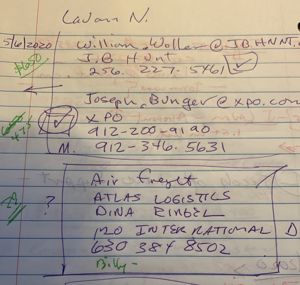 Lavan N.
5/6/2020 William.Woller@JBHNNT.
$650 J.B HUnt
256. 227. 5461
Joseph.Bunger@xpo.com
XPO
912-200-9190
M. 912-346.5631
Air-freget
? ATLAS LOGISTICS
DINA RINGEL
120 INTERNATIONAL D
630 384 8502
Billy-